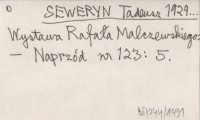 SEWERYN Tadeusz 1929...
Wystawa Rafała Malczewskiego.
— Naprzód nr 123: 5.